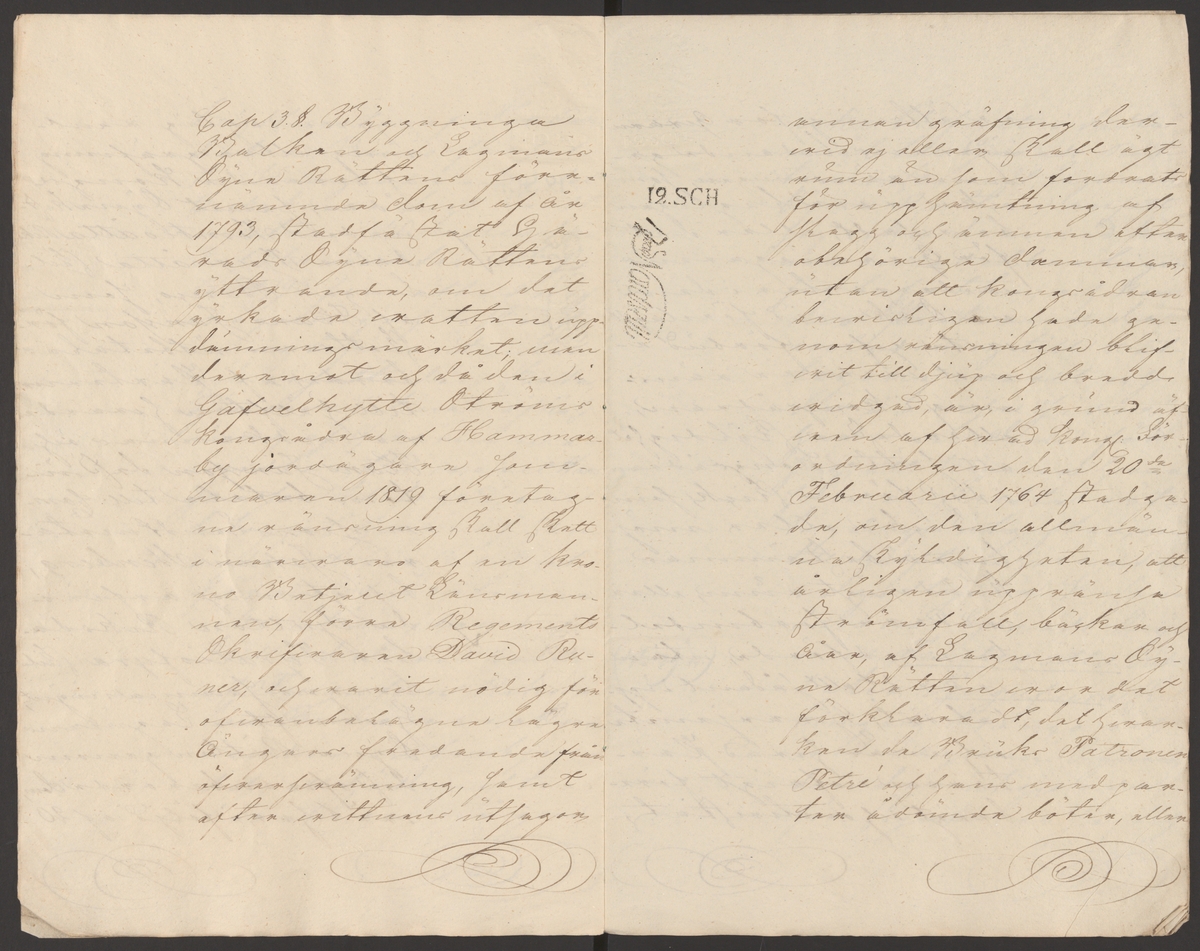 Cap 3.§. Byggninga
Balken och Lagmans
Syne Rättens förr-
nämnde dom af år
1793, stadfästat Hä-
rads Syne Rättens
yttrande, om det
yrkade vatten upp-
dämningsmärket; men
deremot och då den i
Gafvelhytte Ströms
kongsådra af Hammar-
by jordägare som-
maren 1819 företag-
ne ränsning skall skett
i närvaro af en kro-
no Betjent Länsman-
nen, förre Regements
Skrifvaren David Ru-
ner, och varit nödig för
ofvanbelägne lägre
Ängars fredande från
öfversvämning, samt
efter vittnens utsagor
12.SCH
annan gräfning der-
vid ej eller skall ägt
rum än som fordrats
för upphämtning af
slagg och ämnen efter
obehörige dammar,
utan att kongsådran
bevisligen hade ge-
nom ränsningen blif-
vit till djup och bredd
vidgad, är, i grund äf-
ven af hvad Kongl. För-
ordningen den 20de
Februarii 1764 stadga-
de, om den allmän-
na skyldigheten, att
årligen uppränsa
strömfall, bäckar och
åar, af Lagmans Sy-
ne Rätten vordet
förklaradt, det hvar-
ken de Bruks Patronen
Petré och hans medpar-
ter ådömde böter, eller